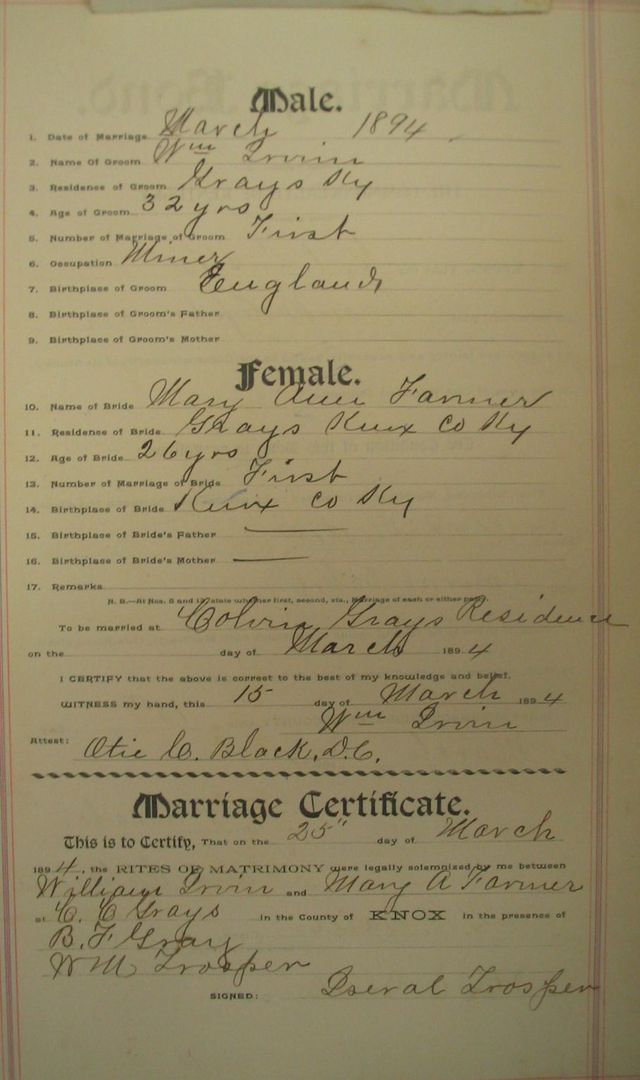 Male.
1. Date of Marriage March 1894
2. Name Of Groom Wm Irvin
3. Residence of Groom Grays Ky
4. Age of Groom 32 yrs
5. Number of Marriage of Groom First
6. Occupation Miner
7. Birthplace of Groom England
8. Birthplace of Groom's Father
9. Birthplace of Groom's Mother
Female.
10. Name of Bride Mary Ann Farmer
11. Residence of Bride Grays Knox Co Ky
12. Age of Bride 26 yrs
13. Number of Marriage of Bride First
14. Birthplace of Bride Knox Co Ky
15. Birthplace of Bride's Father
16. Birthplace of Bride's Mother
17. Remarks
N. B.—At Nos. 5 and 13 state whether first, second, etc., Marriage of each or either party.
To be married at Colvin Grays Residence
on the day of March 1894
I CERTIFY that the above is correct to the best of my knowledge and belief.
WITNESS my hand, this 15 day of March 1894
Wm Irvin
Attest: Otie C. Black, D.C.
Marriage Certificate.
This is to Certify, That on the 25" day of March
1894, the RITES OF MATRIMONY were legally solemnized by me between
William Irvin and Mary A Farmer
at C. C Grays in the County of KNOX in the presence of
B. F Gray
W M Trosper
SIGNED: Iseral Trosper